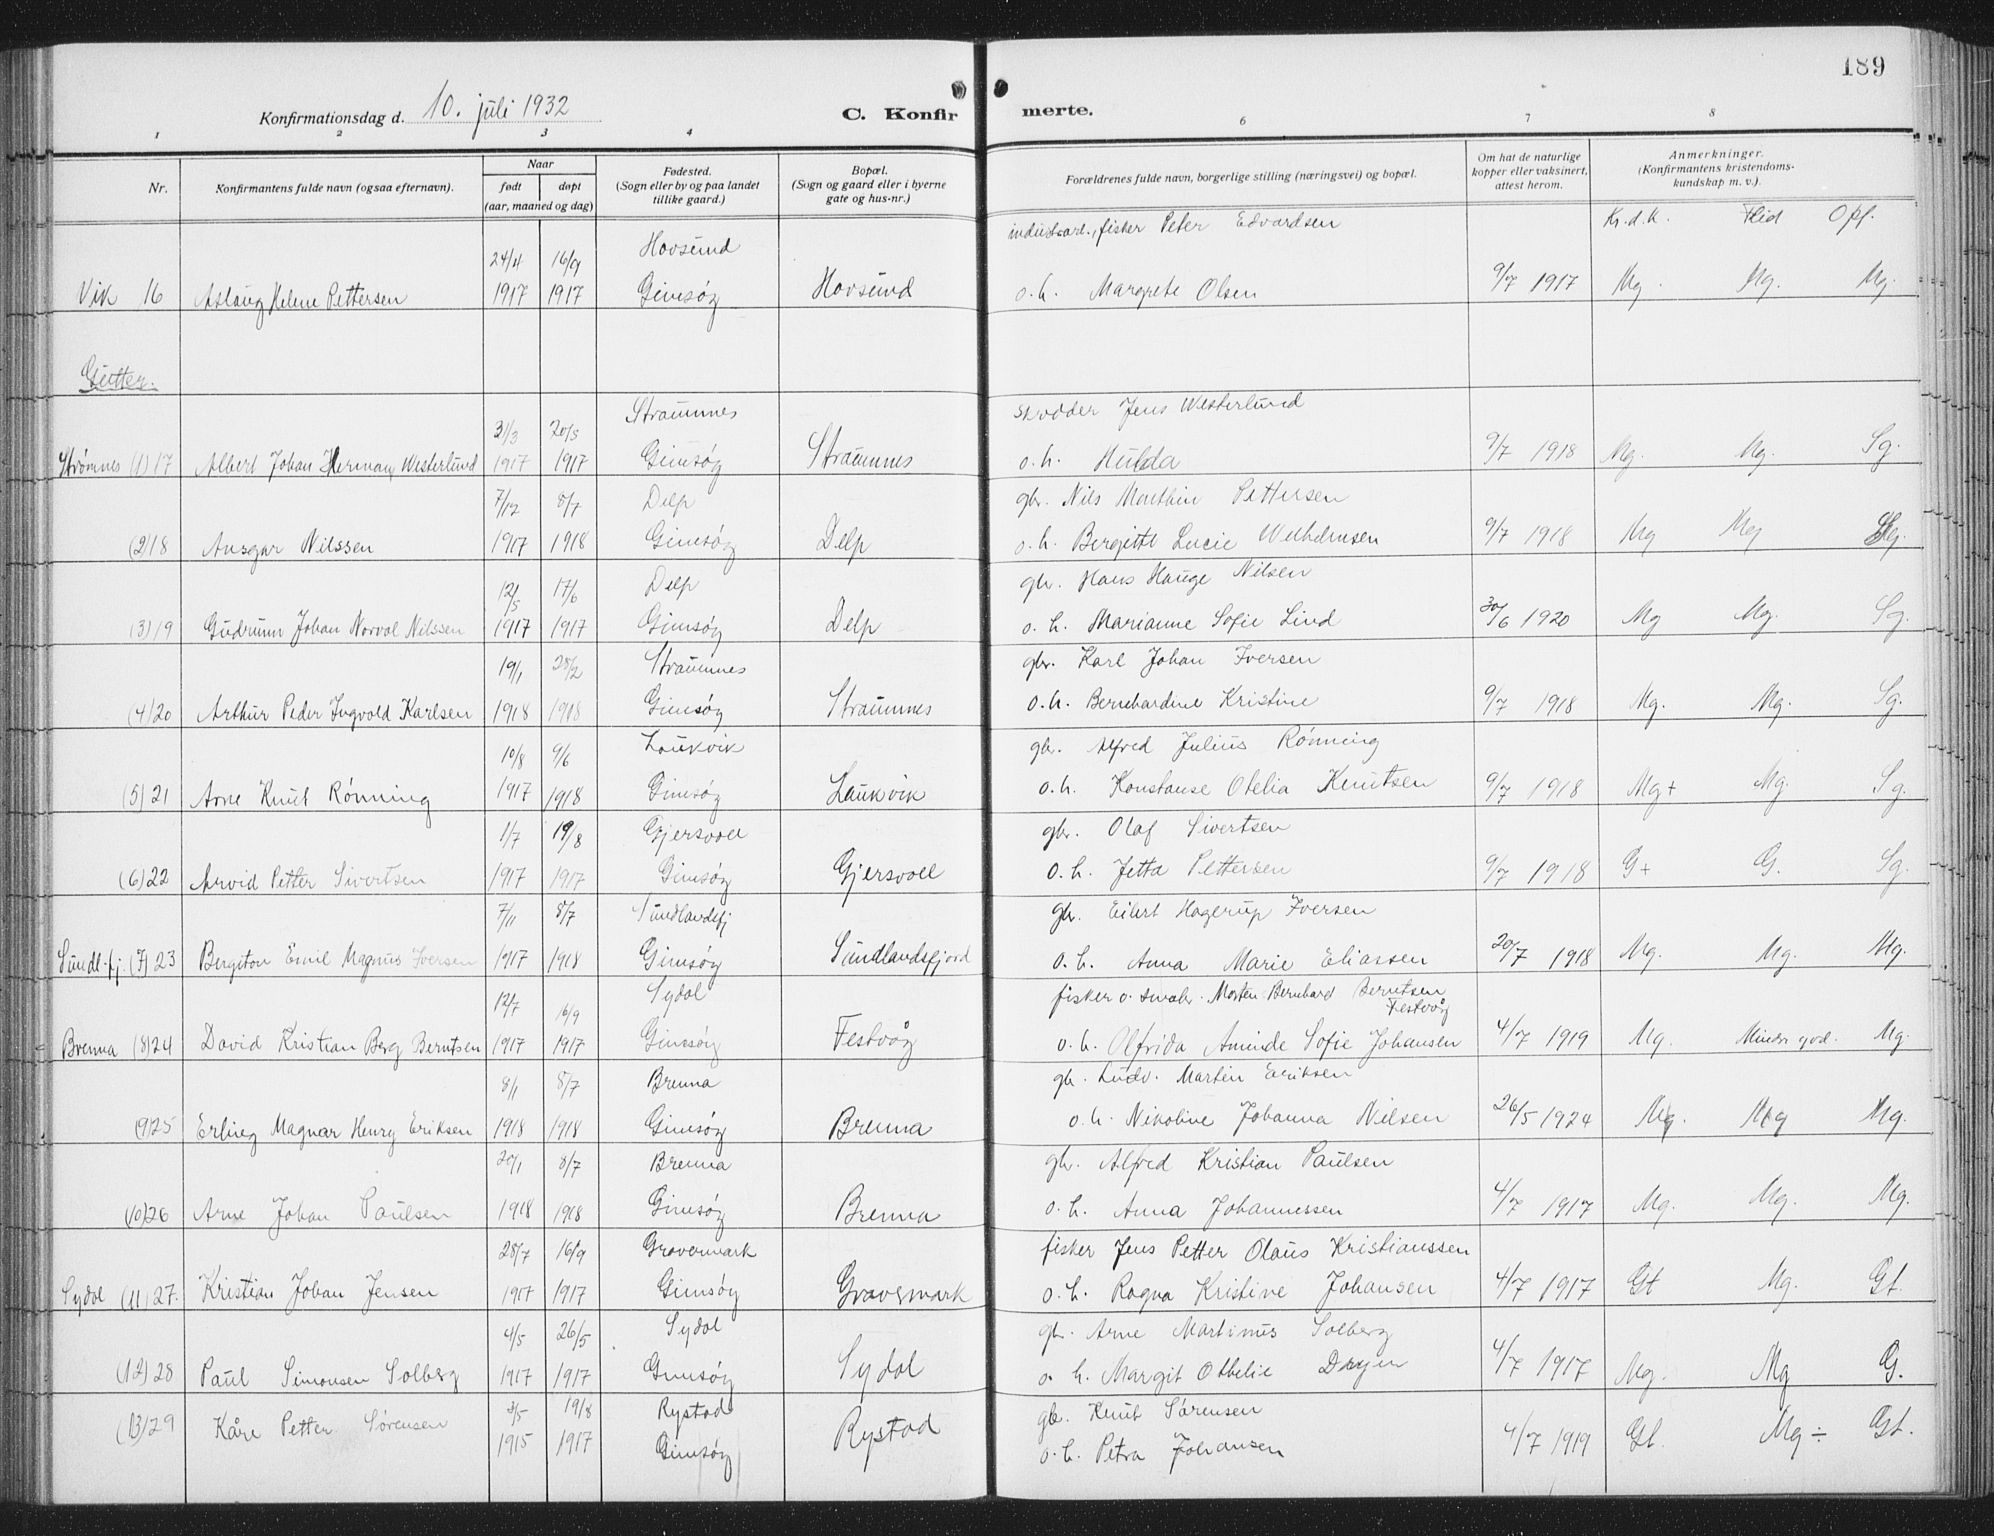 189
Konfirmationsdag d. 10. juli 1932
C. Konfirmerte.
1 2 3 4 6 7 8
Nr.
Konfirmantens fulde navn (ogsaa efternavn).
Naar
født døpt
(aar, maaned og dag)
Fødested.
(Sogn eller by og paa landet
tillike gaard.)
Bopæl.
(Sogn og gaard eller i byerne
gate og hus-nr.)
Forældrenes fulde navn, borgerlige stilling (næringsvei) og bopæl.
Om hat de naturlige
kopper eller vaksinert,
attest herom.
Anmerkninger.
(Konfirmantens kristendoms-
kundskap m. v.).
fisker Peter Edvardsen Kr.d.k. Flid Opf.
24/4 16/9 Hovsund
Vik 16 Aslaug Helene Pettersen 1917 1917 Gimsøy Hovsund o.h. Margrete Olsen 9/7 1917 Mg. Mg. Mg.
Gutter.
31/3 20/5 Straumnes skrædder Jens Westerlund
Strømnes (1) 17 Albert Johan Herman Westerlund 1917 1917 Gimsøy Straumnes o.h. Hulda 9/7 1918 Mg. Mg. Sg.
7/12 8/7 Delp gbr. Nils Marthin Pettersen
(2) 18 Ansgar Nilssen 1917 1918 Gimsøy Delp o.h. Bergitte Lucie 9/7 1918 Mg Mg Sg.
12/5 17/6 Delp gbr. Hans Hauge Nilsen
(3) 19 Gudrunn Johan Norval Nilssen 1917 1917 Gimsøy Delp o.h. Marianne Sofie Lind 30/6 1920 Mg Mg. Sg.
19/1 28/2 Straumnes gbr. Karl Johan Iversen
(4) 20 Arthur Peder Ingvold Karlsen 1918 1918 Gimsøy Straumnes o.h. Bernhardine Kristine 9/7 1918 Mg. Mg. Sg.
10/8 9/6 Laukvik gbr. Alfred Julius Rønning
(5) 21 Arne Knut Rønning 1917 1918 Gimsøy Laukvik o.h. Konstanse Otelia Knutsen 9/7 1918 Mg+ Mg. Sg.
1/7 19/8 Gjersvoll gbr. Olaf Sivertsen
(6) 22 Arvid Petter Sivertsen 1917 1917 Gimsøy Gjersvoll o.h. Jetta Pettersen 9/7 1918 G+ G. Sg.
7/11 8/7 Sundlandsfj gbr. Eilert Hagerup Iversen
Sundl.fj. (7) 23 Bergiton Emil Magnus Iversen 1917 1918 Gimsøy Sundlandsfjord o.h. Anna Marie Eliassen 20/7 1918 Mg. Mg. Mg.
12/7 16/9 Sydal fisker o. småbr. Morten Bernhard Berntsen
Festvåg
Brenna (8) 24 David Kristian Berg Berntsen 1917 1917 Gimsøy Festvåg o.h. Olfrida Aminde Sofie Johansen 4/7 1919 Mg. Mindre god. Mg.
8/1 8/7 Brenna gbr. Ludv. Martin Eriksen
(9) 25 Erling Magnar Henry Eriksen 1918 1918 Gimsøy Brenna o.h. Nikoline Johanna Nilsen 26/5 1924 Mg. Mg Mg.
20/1 8/7 Brenna gbr. Alfred Kristian Paulsen
(10) 26 Arne Johan Paulsen 1918 1918 Gimsøy Brenna o.h. Anna Johannessen 4/7 1917 Mg. Mg. Mg.
28/7 16/9 Gravermark fisker Jens Petter Olaus Kristianssen
Sydal (11) 27. Kristian Johan Jensen 1917 1917 Gimsøy Gravermark o.h. Ragna Kristine Johansen 4/7 1917 Gt Mg. Gt.
4/5 26/5 Sydal gbr. Arne Martinus Solberg
(12) 28 Paul Simonsen Solberg 1917 1917 Gimsøy Sydal o.h. Margit Othelie 4/7 1917 Mg. Mg G.
3/5 19/8 Rystad gb. Knut Sørensen
(13) 29 Kåre Petter Sørensen 1915 1917 Gimsøy Rystad o.h. Petra Johansen 4/7 1919 Gt. Mg ÷ Gt.